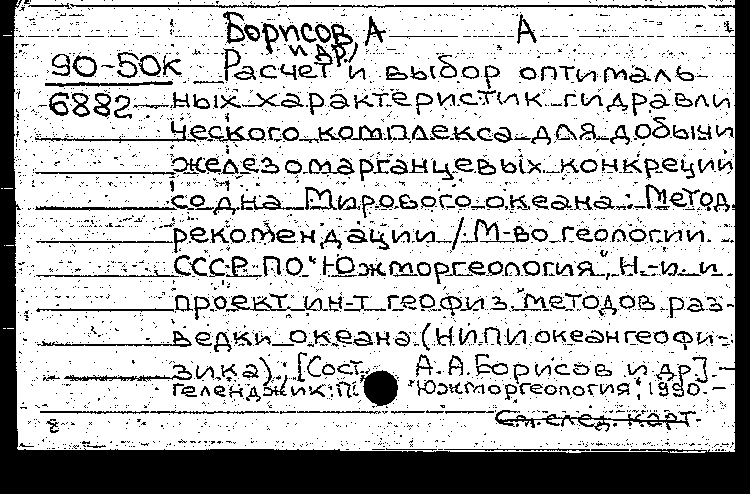 Борисов А А
и др,
90-50К Расчет и выбор оптималь-
6882 ных характеристик гидравли
ческого комплекса для добычи
железомарганцевых конкреций
со дна Мирового океана: Метод.
рекомендации / М-во геологии
СССР ПО "Южморгеология", Н.-и. и
проект. ин-т геофиз. методов раз-
ведки океана (НИПИокеангеофи-
зика); [Сост. А.А.Борисов и др.].-
Геленджик: П "Южморгеология", 1990.-
См. след. карт.
8